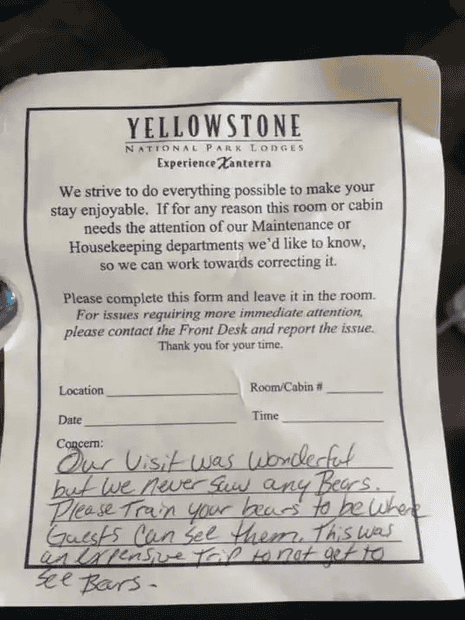 YELLOWSTONE
NATIONAL PARK LODGES
Experience Xanterra
We strive to do everything possible to make your
stay enjoyable. If for any reason this room or cabin
needs the attention of our Maintenance or
Housekeeping departments we'd like to know,
so we can work towards correcting it.
Please complete this form and leave it in the room.
For issues requiring more immediate attention,
please contact the Front Desk and report the issue.
Thank you for your time.
Location Room/Cabin #
Date Time
Concern:
Our Visit was wonderful
but we never saw any Bears.
Please Train your bears to be where
Guests can see them. This was
an expensive trip to not get to
see Bears.